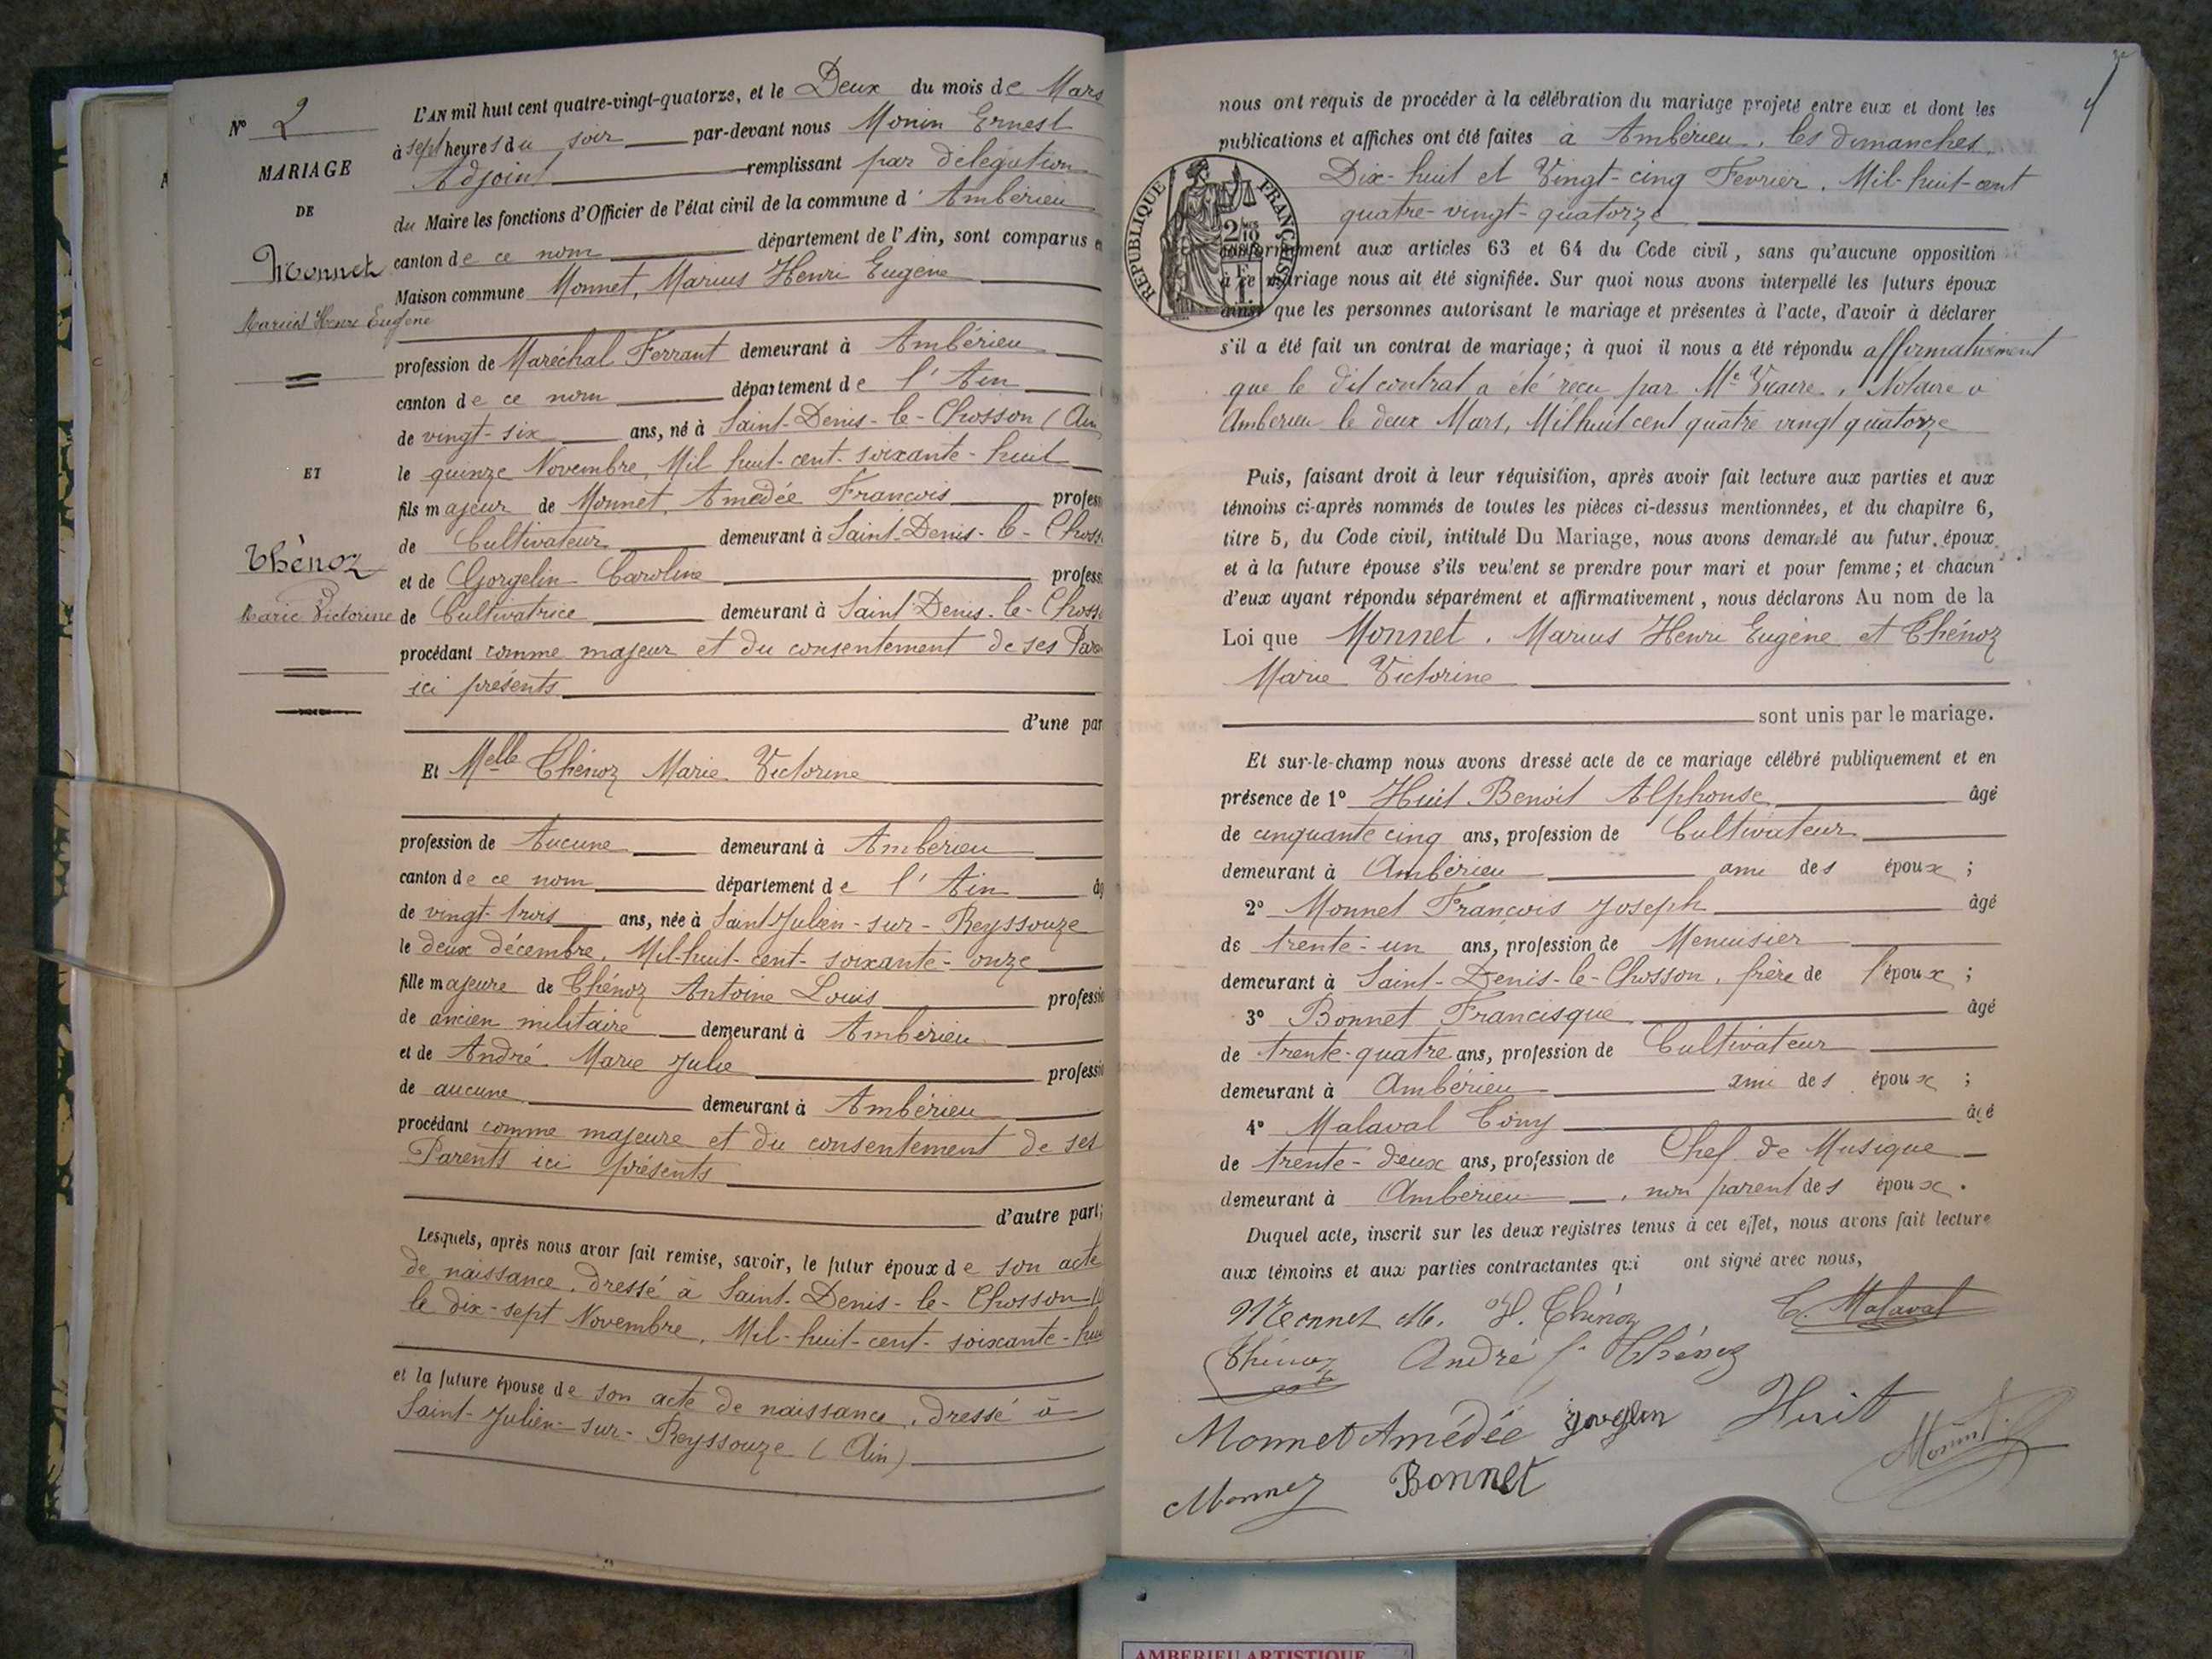 N° 2
MARIAGE
DE
Monnet
Marius Henri Eugène
ET
Thènoz
Marie Victorine
L'AN mil huit cent quatre-vingt-quatorze, et le Deux du mois de Mars
à sept heures du soir par-devant nous Monin Ernest
Adjoint remplissant par délégation
du Maire les fonctions d'Officier de l'état civil de la commune d'Ambérieu
canton de ce nom département de l'Ain, sont comparus e
Maison commune Monnet, Marius Henri Eugène
profession de Maréchal Ferrant demeurant à Ambérieu
canton de ce nom département de l'Ain
de vingt-six ans, né à Saint-Denis-le-Chosson (Ain
le quinze Novembre, Mil huit-cent-soixante-huit
fils majeur de Monnet, Amédée François profess
de Cultivateur demeurant à Saint-Denis-le-Choss
et de Gorgelin Caroline profess
de Cultivatrice demeurant à Saint Denis-le-Choss
procédant comme majeur et du consentement de ses Paren
ici présents
d'une par
Et Melle Thénoz Marie Victorine
profession de Aucune demeurant à Ambérieu
canton de ce nom département de l'Ain âg
de vingt-trois ans, née à Saint Julien-sur-Reyssouze
le deux décembre, Mil-huit-cent-soixante-onze
fille majeure de Thénoz Antoine Louis professio
de ancien militaire demeurant à Ambérieu
et de André Marie Julie professio
de aucune demeurant à Ambérieu
procédant comme majeure et du consentement de ses
Parents ici présents
d'autre part;
Lesquels, après nous avoir fait remise, savoir, le futur époux de son acte
de naissance, dressé à Saint-Denis-le-Chosson
le dix-sept Novembre, Mil-huit-cent-soixante-hui
et la future épouse de son acte de naissance, dressé à
Saint-Julien-sur-Reyssouze (Ain)
4
nous ont requis de procéder à la célébration du mariage projeté entre eux et dont les
publications et affiches ont été faites à Ambérieu, les dimanches
Dix-huit et Vingt-cinq Fevrier, Mil-huit-cent
quatre-vingt-quatorze
RÉPUBLIQUE FRANÇAISE
conformément aux articles 63 et 64 du Code civil, sans qu'aucune opposition
à ce mariage nous ait été signifiée. Sur quoi nous avons interpellé les futurs époux
ainsi que les personnes autorisant le mariage et présentes à l'acte, d'avoir à déclarer
s'il a été fait un contrat de mariage; à quoi il nous a été répondu affirmativement
que le dit contrat a été reçu par Me Vicaire, Notaire à
Ambérieu le deux Mars, Mil huit cent quatre vingt quatorze
Puis, faisant droit à leur réquisition, après avoir fait lecture aux parties et aux
témoins ci-après nommés de toutes les pièces ci-dessus mentionnées, et du chapitre 6,
titre 5, du Code civil, intitulé Du Mariage, nous avons demandé au futur époux
et à la future épouse s'ils veulent se prendre pour mari et pour femme; et chacun
d'eux ayant répondu séparément et affirmativement, nous déclarons Au nom de la
Loi que Monnet, Marius Henri Eugène et Thénoz
Marie Victorine
sont unis par le mariage.
Et sur-le-champ nous avons dressé acte de ce mariage célébré publiquement et en
présence de 1° Huit Benoit Alphonse âgé
de cinquante cinq ans, profession de Cultivateur
demeurant à Ambérieu ami des époux;
2° Monnet François Joseph âgé
de trente-un ans, profession de Menuisier
demeurant à Saint-Denis-le-Chosson, frère de l'époux;
3° Bonnet Francisque âgé
de trente-quatre ans, profession de Cultivateur
demeurant à Ambérieu ami des époux;
4° Malaval Tony âgé
de trente-deux ans, profession de Chef de Musique
demeurant à Ambérieu, non parent des époux.
Duquel acte, inscrit sur les deux registres tenus à cet effet, nous avons fait lecture
aux témoins et aux parties contractantes qui ont signé avec nous,
Monnet M. V. Thénoz T. Malaval
Thénoz André f. Thénoz
Monnet Amédée gorgelin Huit Monin
Monnet Bonnet
AMBERIEU ARTISTIQUE